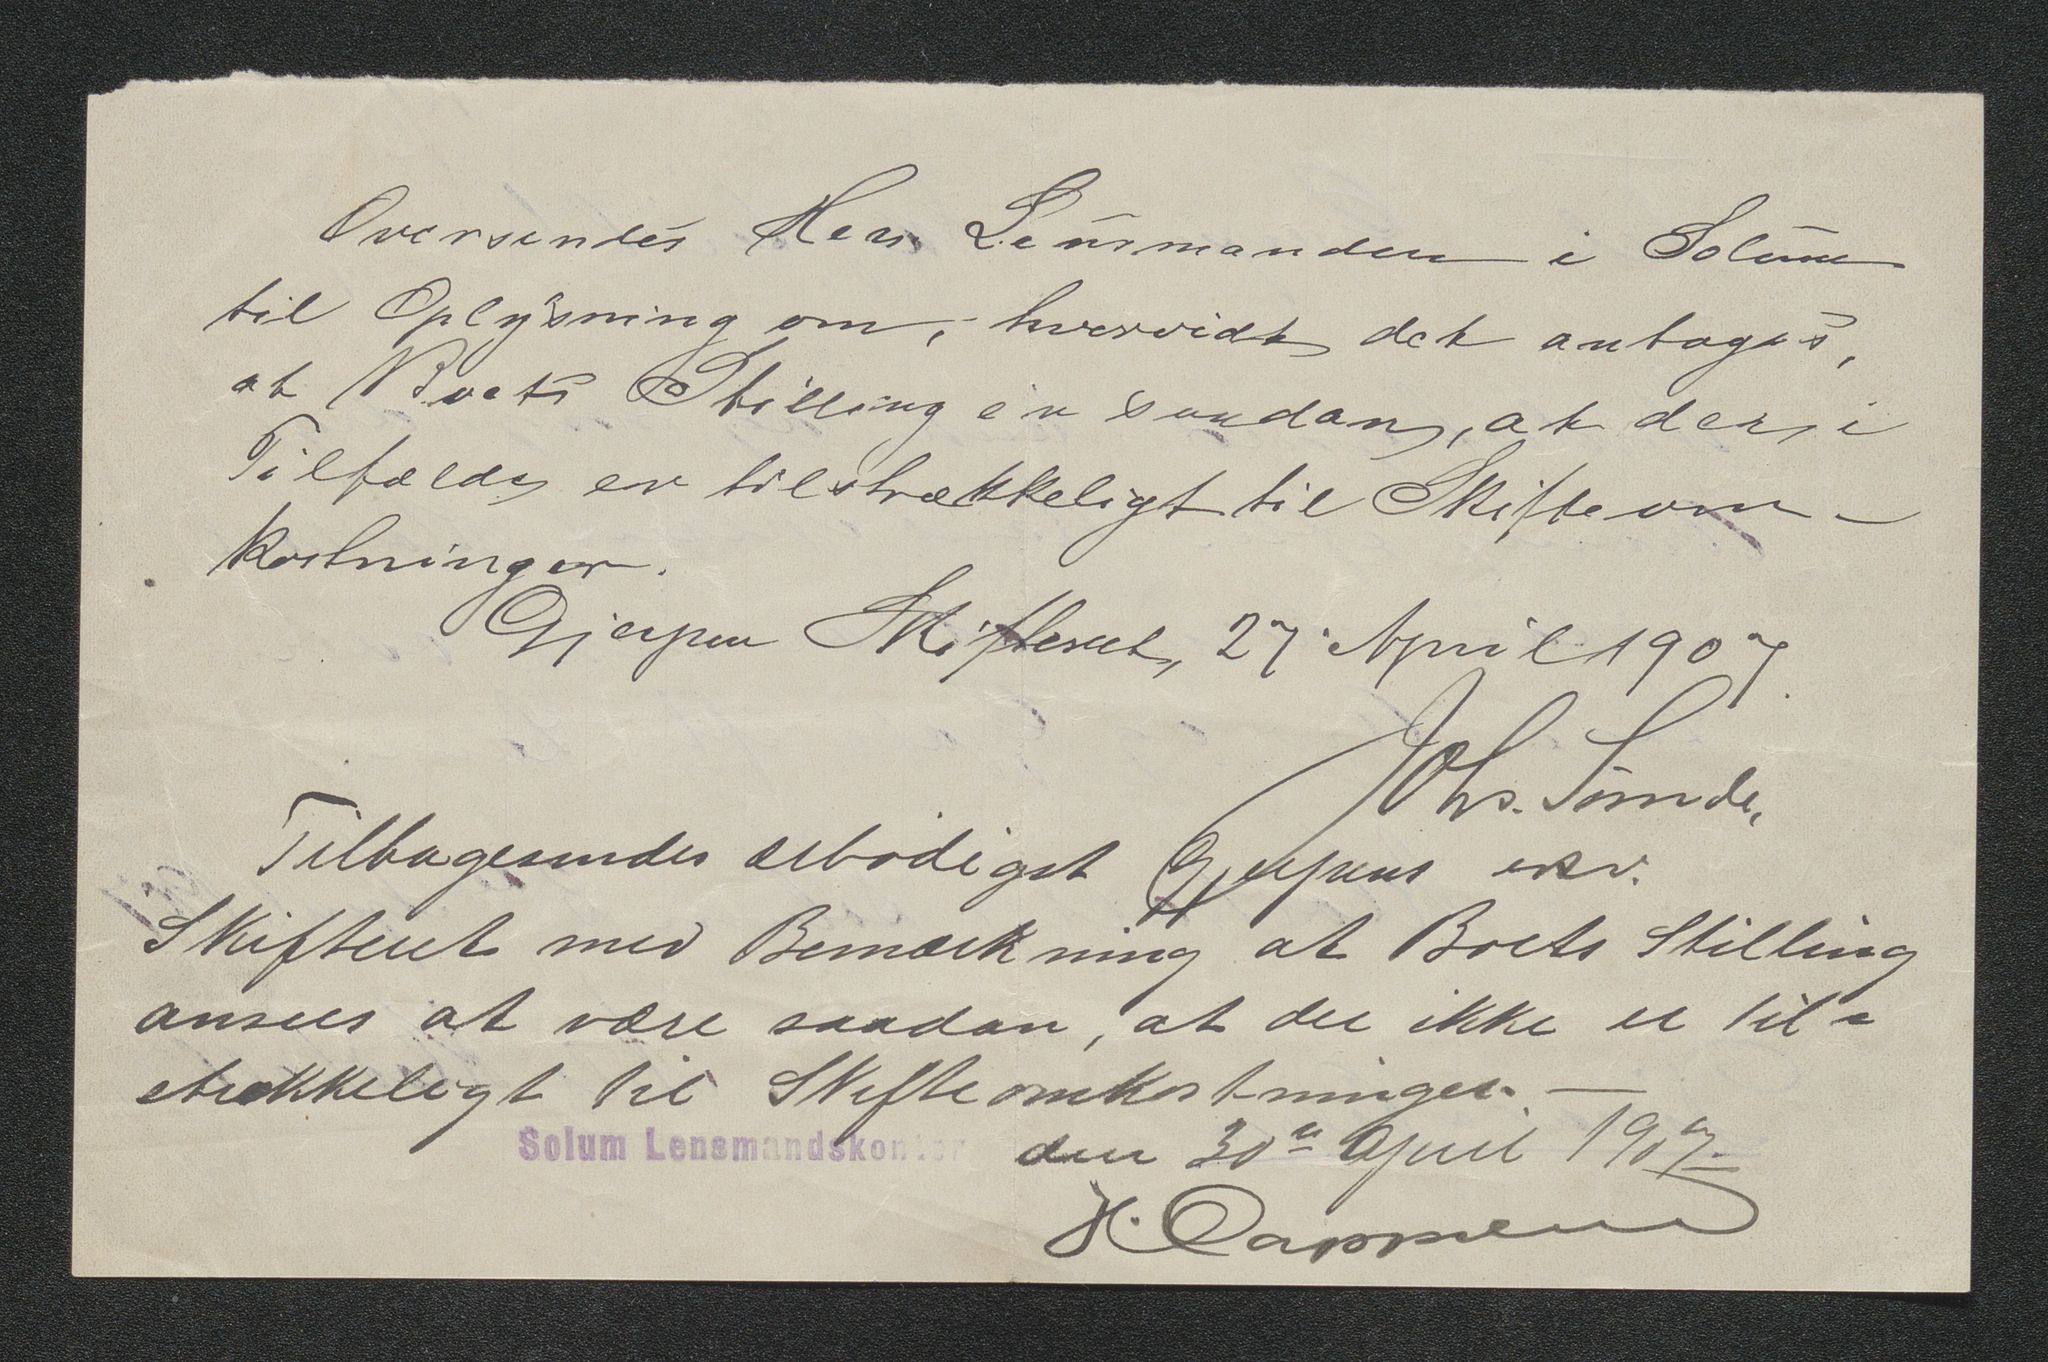 Oversendes Herr Lensmanden i Solum
til Oplysning om, hvorvidt det antages,
at Boets Stilling er saadan, at der i
Tilfælde er tilstrækkeligt til Skifteom-
kostninger.
Gjerpen Skifteret, 27 April 1907.
Johs.
Tilbagesendes ærbødigst Gjerpens
Skifteret med Bemærkning at Boets Stilling
ansees at være saadan, at der ikke er til-
strækkeligt til Skifteomkostninger. —
Solum Lensmandskontor den 30te April 1907.
H. Cappelen